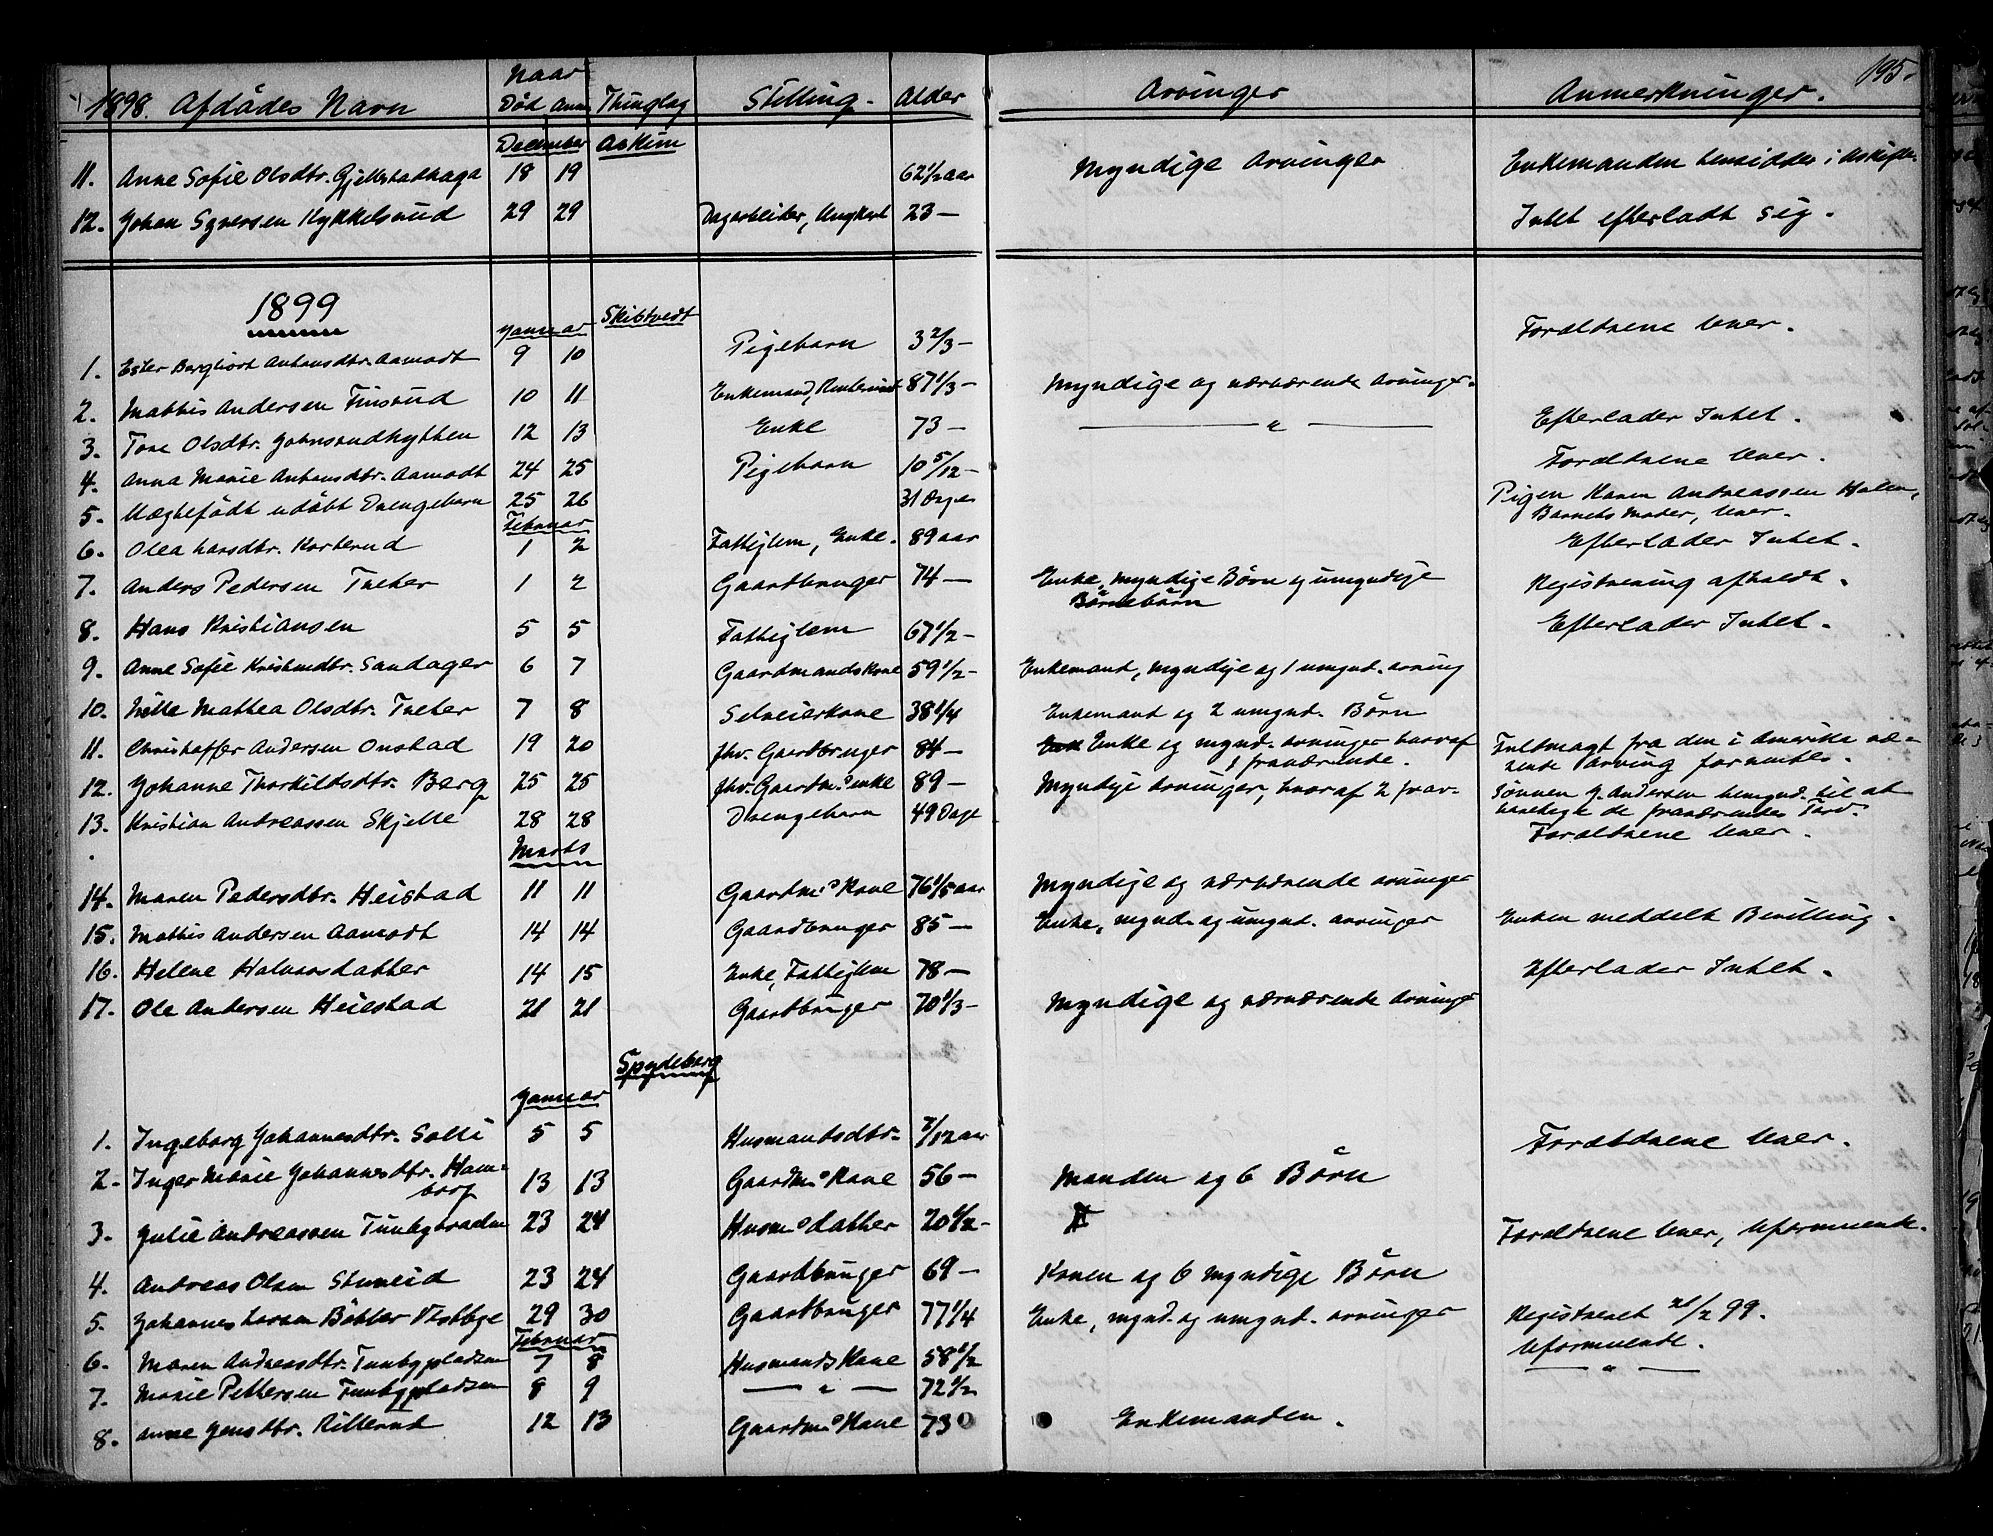 195.
1898. Afdødes Navn | Naar Død Anm. | Thinglag | Stilling. | Alder | Arvinger | Anmerkninger.
December Askim
11. Anne Sofie Olsdtr. Gjellestadhaga 18 19 62 1/2 aar Myndige Arvinger Enkemanden hensidder i uskifte.
12. Johan Syversen Kykkelsrud 29 29 Dagarbeider, Ungkarl 23 — Intet efterladt sig.
1899
Januar Skibtvedt
1. Ester Bergliot Antonsdtr. Aamodt 9 10 Pigebarn 3 2/3 — Forældrene lever.
2. Mathis Andersen Finsrud 10 11 Enkemand, 87 1/3 — Myndige og nærværende Arvinger.
3. Tore Olsdtr. Johnsrudhytten 12 13 Enke 73 — — " — Efterlader Intet.
4. Anna Marie Antonsdtr. Aamodt 24 25 Pigebarn 10 5/12 — Forældrene lever.
5. Uægtefødt udøbt Drengebarn 25 26 31 Dage Pigen Karen Andreassen Holen,
Barnets Moder, lever.
Februar
6. Olea Larsdtr. Korterud 1 2 Fattiglem, Enke. 89 aar Efterlader Intet.
7. Anders Pedersen Træter 1 2 Gaardbruger 74 — Enke, myndige Børn og umyndige
Børnebørn Registrering afholdt.
8. Hans Kristiansen 5 5 Fattiglem 67 1/2 — Efterlader Intet.
9. Anne Sofie Sandager 6 7 Gaardmandskone 59 1/2 — Enkemand, myndige og 1 umynd. Arving
10. Mathea Olsdtr. Træter 7 8 Selveierkone 38 1/4 Enkemand og 2 umynd. Børn
11. Christoffer Andersen Onstad 19 20 fhv. Gaardbruger 84 — Enke og mynd. Arvinger hvoraf
1 fraværende. Fuldmagt fra den i Amerika væ-
rende Arving forventes.
12. Johanne Thorkildsdtr. Berg 25 25 fhv. Gaardm.s enke 89 — Myndige Arvinger, hvoraf 2 frav. Sønnen J. Andersen bemynd. til at
varetage de fraværendes Tarv.
13. Kristian Andreassen Skjelle 28 28 Drengebarn 49 Dage Forældrene lever.
Marts
14. Maren Pedersdtr. Heistad 11 11 Gaardm.s Kone 76 1/5 aar Myndige og nærværende Arvinger
15. Mathis Andersen Aamodt 14 14 Gaardbruger 85 — Enke, mynd. og umynd. Arvinger Enken meddelt Bevilling.
16. Helene Halvorsdatter 14 15 Enke, Fattiglem 78 — Efterlader Intet.
17. Ole Andersen Heiestad 21 21 Gaardbruger 70 1/3 — Myndige og nærværende Arvinger
Spydeberg
Januar
1. Ingeborg Johannesdtr. Solli 5 5 Husmandsdtr. 7/12 aar Forældrene lever.
2. Inger Marie Johannesdtr. Ham-
borg 13 13 Gaardm.s Kone 56 — Manden og 6 Børn
3. Julie Andreassen 23 24 Husm.s datter 20 1/2 — Forældrene lever, Uformuende.
4. Andreas Olsen 23 24 Gaardbruger 69 — Konen og 6 myndige Børn
5. Johannes Larsen Bøhler Vestbye 29 30 Gaardbruger 77 1/4 Enke, mynd. og umynd. Arvinger Registreret 21/2 99.
Februar
6. Maren Andreasdtr. Tunbypladsen 7 8 Husmands Kone 58 1/2 Uformuende.
7. Marie Pettersen Tunbypladsen 8 9 — " — 72 1/2 — " —
8. Anne Jensdtr. Rillerud 12 13 Gaardm.s Kone 73 Enkemanden.